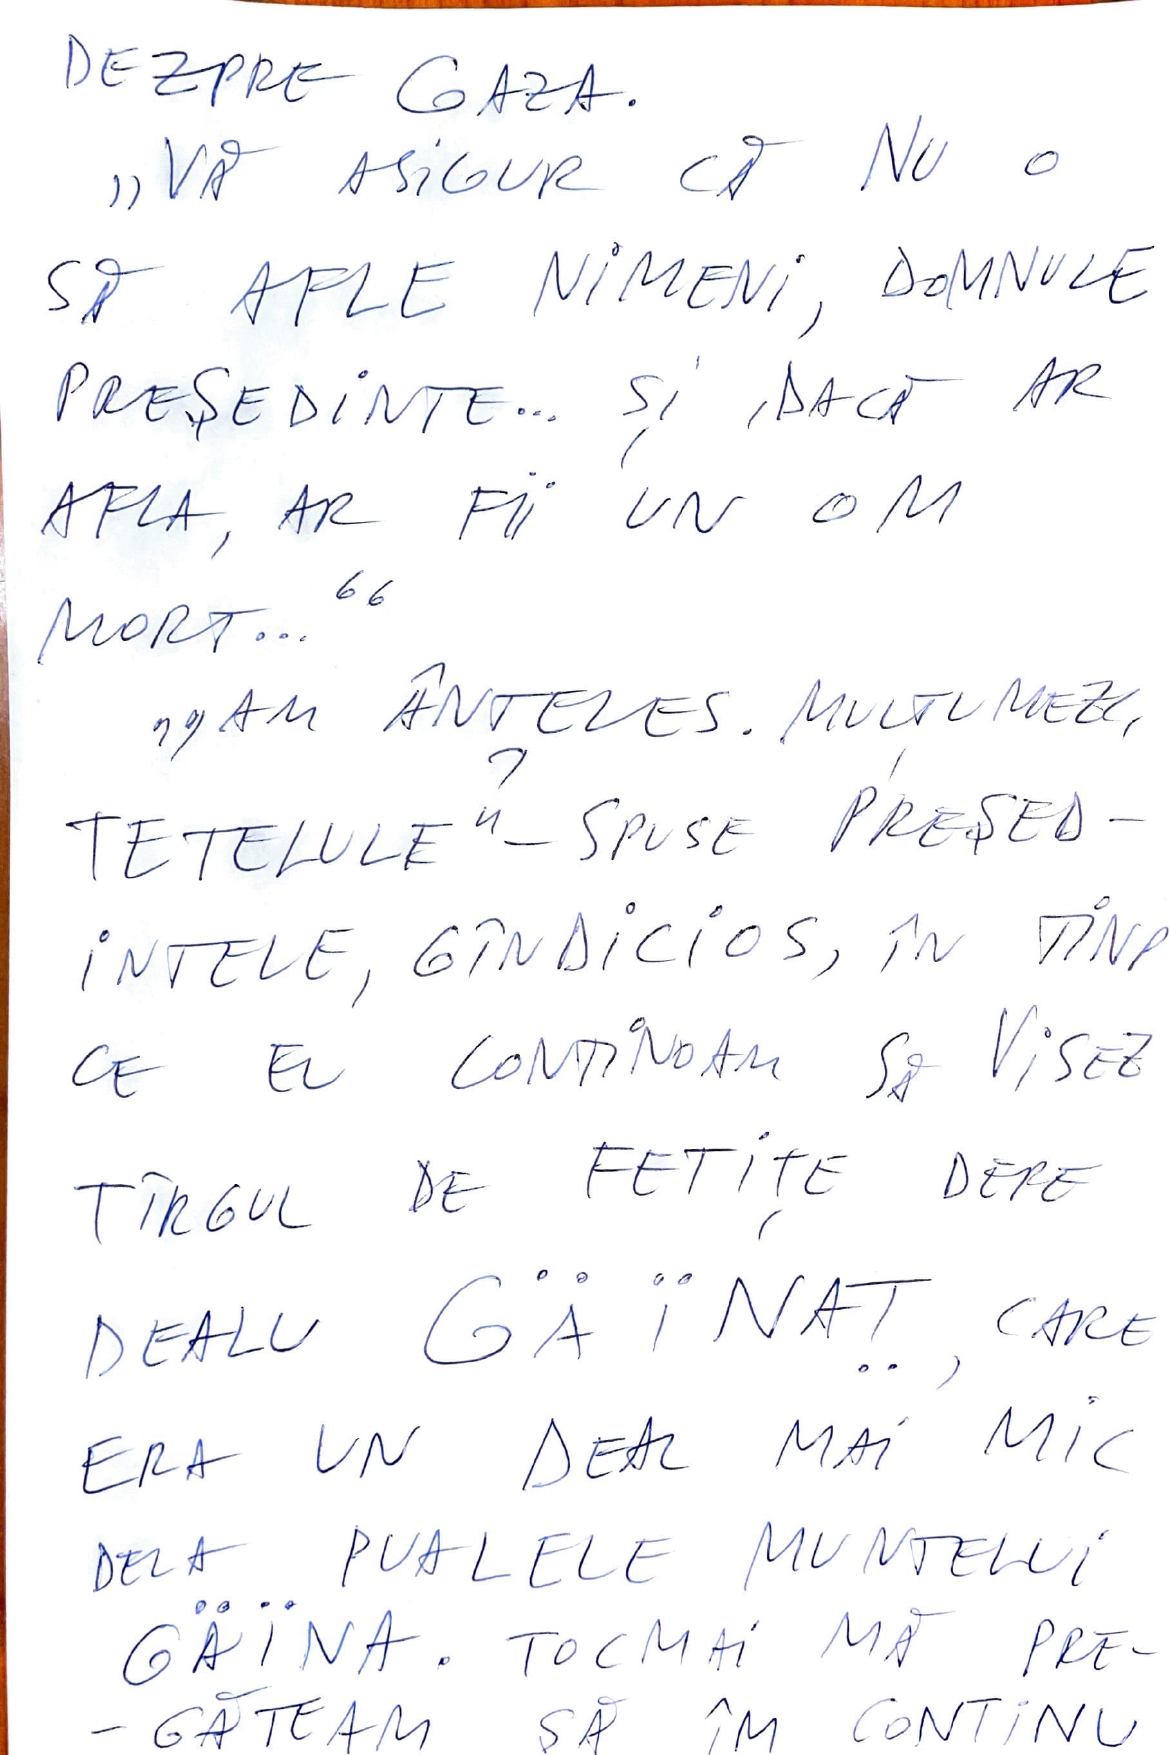 DEZPRE GAZA.
„VĂ ASIGUR CĂ NU O
SĂ AFLE NIMENI, DOMNULE
PREȘEDINTE... ȘI DACĂ AR
AFLA, AR FII UN OM
MORT...“
„AM ÂNȚELES. MULȚUMEZC,
TETELULE" - SPUSE PREȘED-
INTELE, GÎNDICIOS, ÎN TINP
CE EL CONTINOAM SĂ VISEZ
TÎRGUL DE FETIȚE DEPE
DEALU GÄÏNAT̤, CARE
ERA UN DEAL MAI MIC
DELA PUALELE MUNTELUI
GÄÏNA. TOCMAI MĂ PRE-
- GĂTEAM SĂ ÎM CONTINU